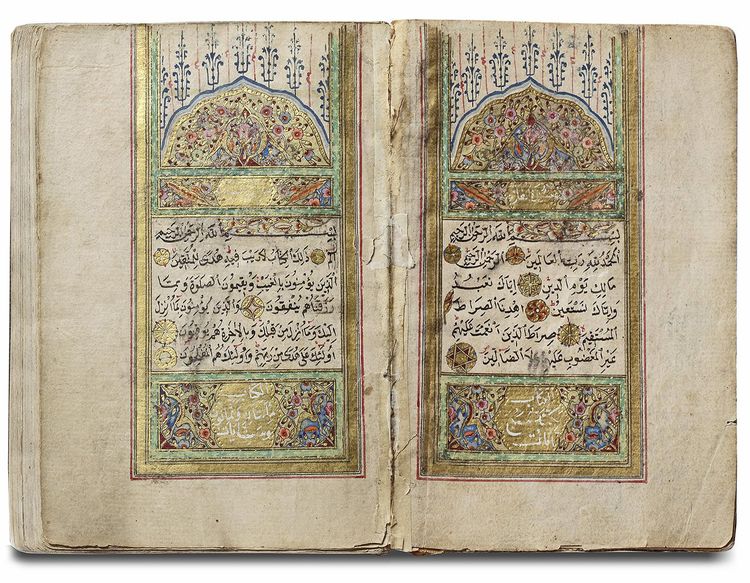 بسم الله الرحمن الرحيم
الحمد لله رب العالمين الرحمن الرحيم
مالك يوم الدين اياك نعبد
واياك نستعين اهدنا الصراط
المستقيم صراط الذين انعمت عليهم
غير المغضوب عليهم ولا الضالين
بسم الله الرحمن الرحيم
ذلك الكتاب لا ريب فيه هدى للمتقين
الذين يؤمنون بالغيب ويقيمون الصلوة ومما
رزقناهم ينفقون والذين يؤمنون بما انزل
اليك وما انزل من قبلك وبالاخرة هم يوقنون
اولئك على هدى من ربهم واولئك هم المفلحون